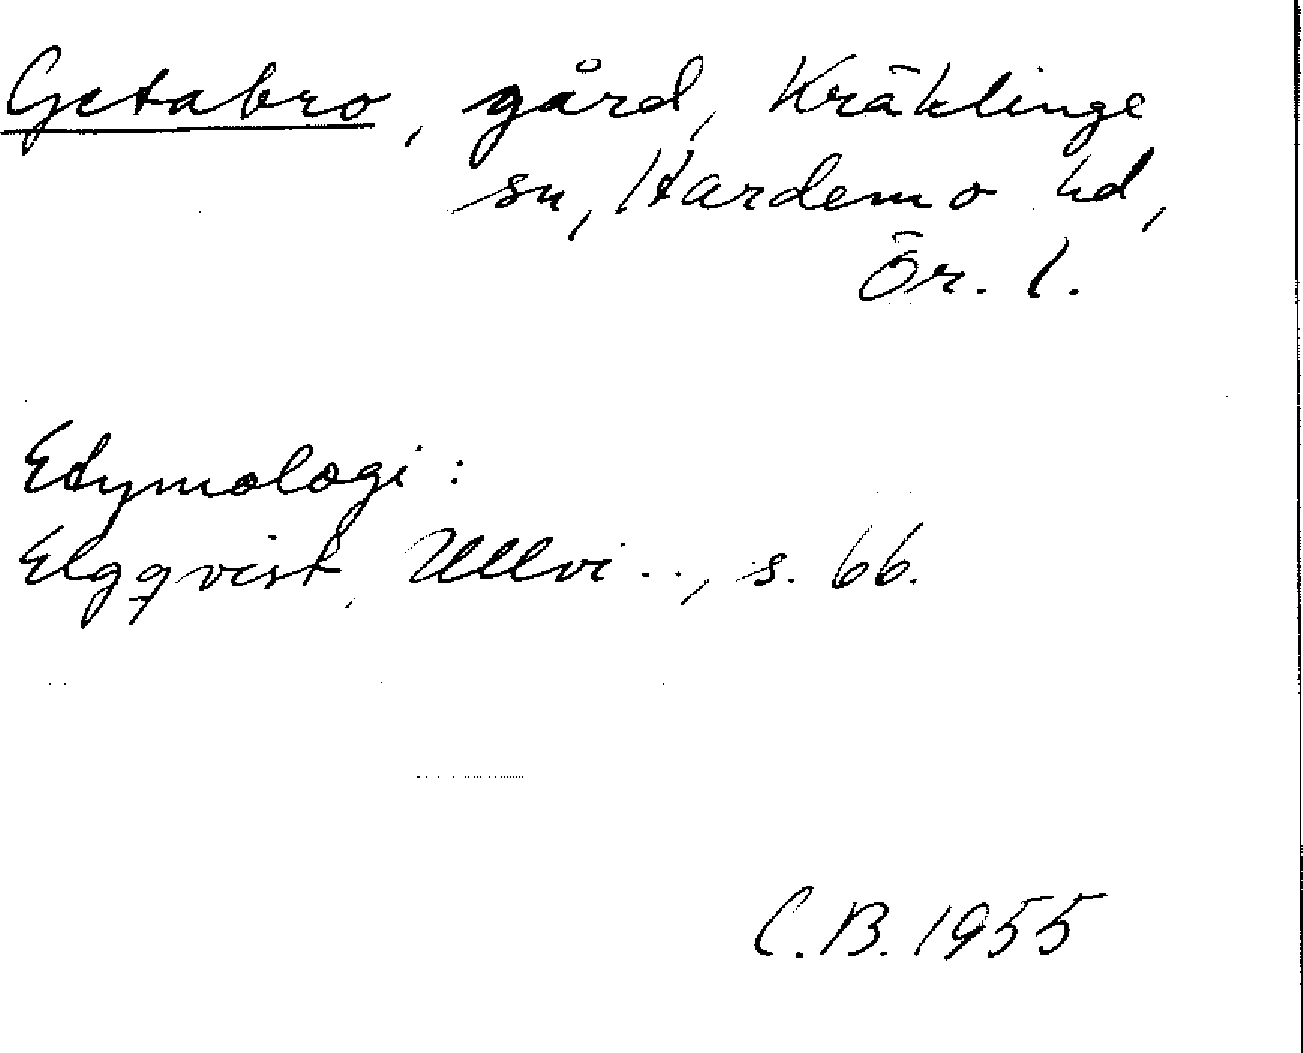 Getabro, gård, Kräklinge
sn, Hardemo hd,
Ör. l.
Etymologi:
Elgqvist, Ullvi.., s. 66.
C.B. 1955